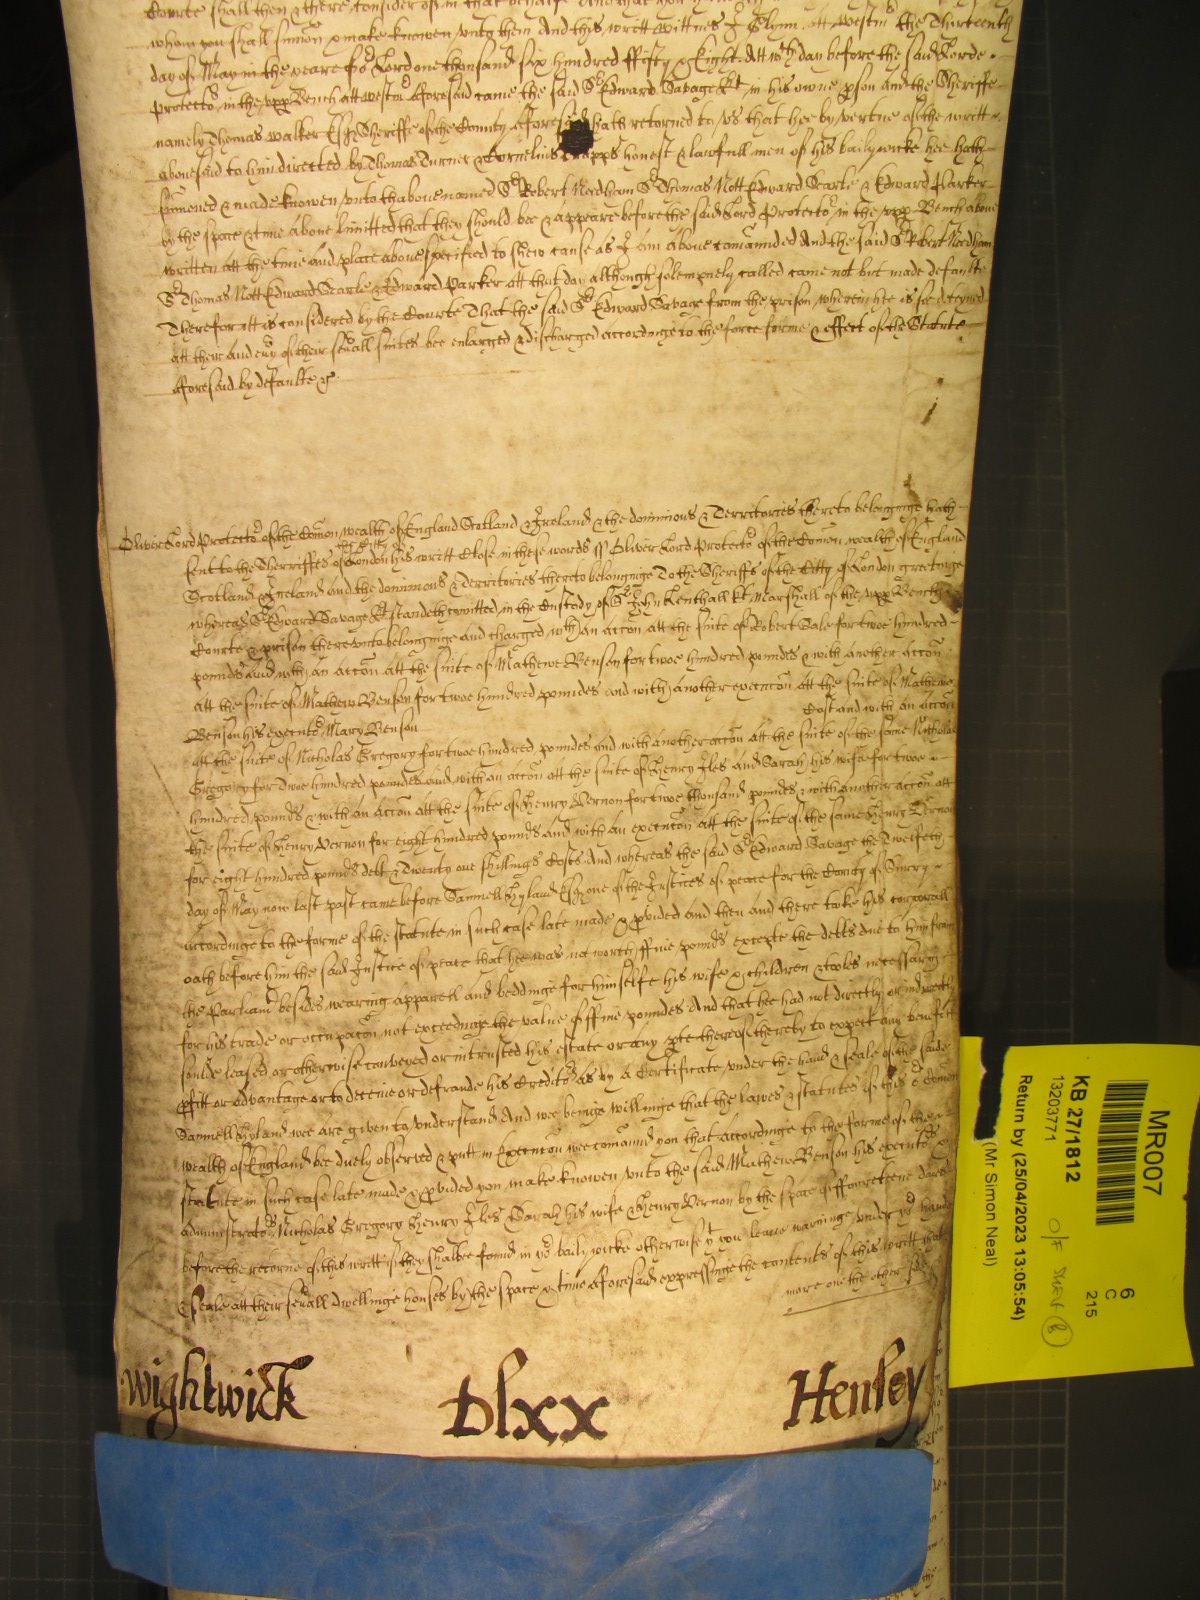 Courte shall then & there consider of in that behalfe And that you
whom you shall sumon & make knowen unto them And this writt wittnes J Glynn att Westm the Thirteenth
day of May in the yeare of or Lord one thousand six hundred ffifty & Eight Att wch day before the said Lorde
Protector in the upp Bench att Westmr aforesaid came the said Sr Edward Savage Kt in his owne pson And the Sheriffe
namely Thomas Walker Esqr Sheriffe of the County aforesaid hath returned to us that hee by vertue of the writt
abovesaid to him directed by Thomas Turner & Cornelius honest & lawfull men of his bailywicke hee hath
sumoned & made knowen unto thabove named Sr Robert Needham Sr Thomas Nott Edward Searle & Edward Parker
by the space & time above limitted that they should bee & appeare before the said Lord Protector in the upp Bench above
written att the time and place above specified to shew cause as I am above comaunded And the said Sr Robert Needham
Sr Thomas Nott Edward Searle & Edward Parker att that day although solempnely called came not but made defaulte
Therefor itt is considered by the Courte That the said Sr Edward Savage from the prison wherein hee is soe deteyned
att their and evy of their sevall suites bee enlarged & discharged accordinge to the force forme & effect of the Statute
aforesaid by defaulte &c
Oliver Lord Protector of the Comon wealth of England Scotland & Ireland & the dominions & Territories thereto belonginge hath
sent to the Sherriffes of the Citty of London his writt Close in these words ss Oliver Lord Protector of the Comon wealth of England
Scotland & Ireland and the dominions & Territories thereto belonginge To the Sheriffs of the Citty of London greetinge
whereas Sr Edward Savage Kt standeth comitted in the Custody of Sr John Lenthall Kt Marshall of the upp Bench
Courte & prison thereunto belonginge and charged with an accon att the suite of Robert Sale for twoe hundred
pounds and with an accon att the suite of Mathewe Benson for twoe hundred pounds & with another accon
att the suite of Mathew Benson for twoe hundred pounds and with another execucon att the suite of Mathewe
Benson his executr Mary Benson Cost and with an accon
att the suite of Nicholas Gregory for twoe hundred pounds and with another accon att the suite of the same Nicholas
Gregory for Twoe hundred pounds and with an accon att the suite of Henry Iles and Sarah his wife for twoe
hundred pounds & with an accon att the suite of Henry Vernon for twoe thousand pounds & with another accon att
the suite of Henry Vernon for eight hundred pounds and with an execucon att the suite of the same Henry Vernon
for eight hundred pounds debt & Twenty one shillings Costs And whereas the said Sr Edward Savage the Twelfeth
day of May now last past came before Samuell Hyland Esqr one of the Justices of peace for the County of Surry
accordinge to the forme of the statute in such case late made & pvided and then and there tooke his corporall
oath before him the said Justice of peace that hee was not worth ffive pounds excepte the debts due to him from
the Parliamt besides wearing apparell and beddinge for himselfe his wife & children & tooles necessary
for his trade or occupacon not exceedinge the value of ffive pounds And that hee had not directly or indirectly
soulde leased or otherwise conveyed or intrusted his estate or any pte thereof thereby to expect any benefitt
pfitt or advantage or to deceive or defraude his Creditors as by a Certificate under the hand & seale of the saide
Samuell Hyland wee are given to understand And wee beinge willinge that the lawes & statutes of this Comon
wealth of England bee duely observed & putt in Execucon wee comaund you that accordinge to the forme of the
statute in such case late made & pvided you make knowen unto the said Mathewe Benson his executors
administrators Nicholas Gregory Henry Iles Sarah his wife & Henry Vernon by the space of ffourteene daies
before the retorne of this writt if they shalbee found in yor baily wicke otherwise yt you leave warninge under yor hande
& Seale att their sevall dwellinge houses by the space & time aforesaid expressinge the contents of this writt that
more one the other side
Wightwick Dlxx Henley
MR007
6
C
215
KB 27/1812
13203771
Return by (25/04/2023 13:05:54)
(Mr Simon Neal)